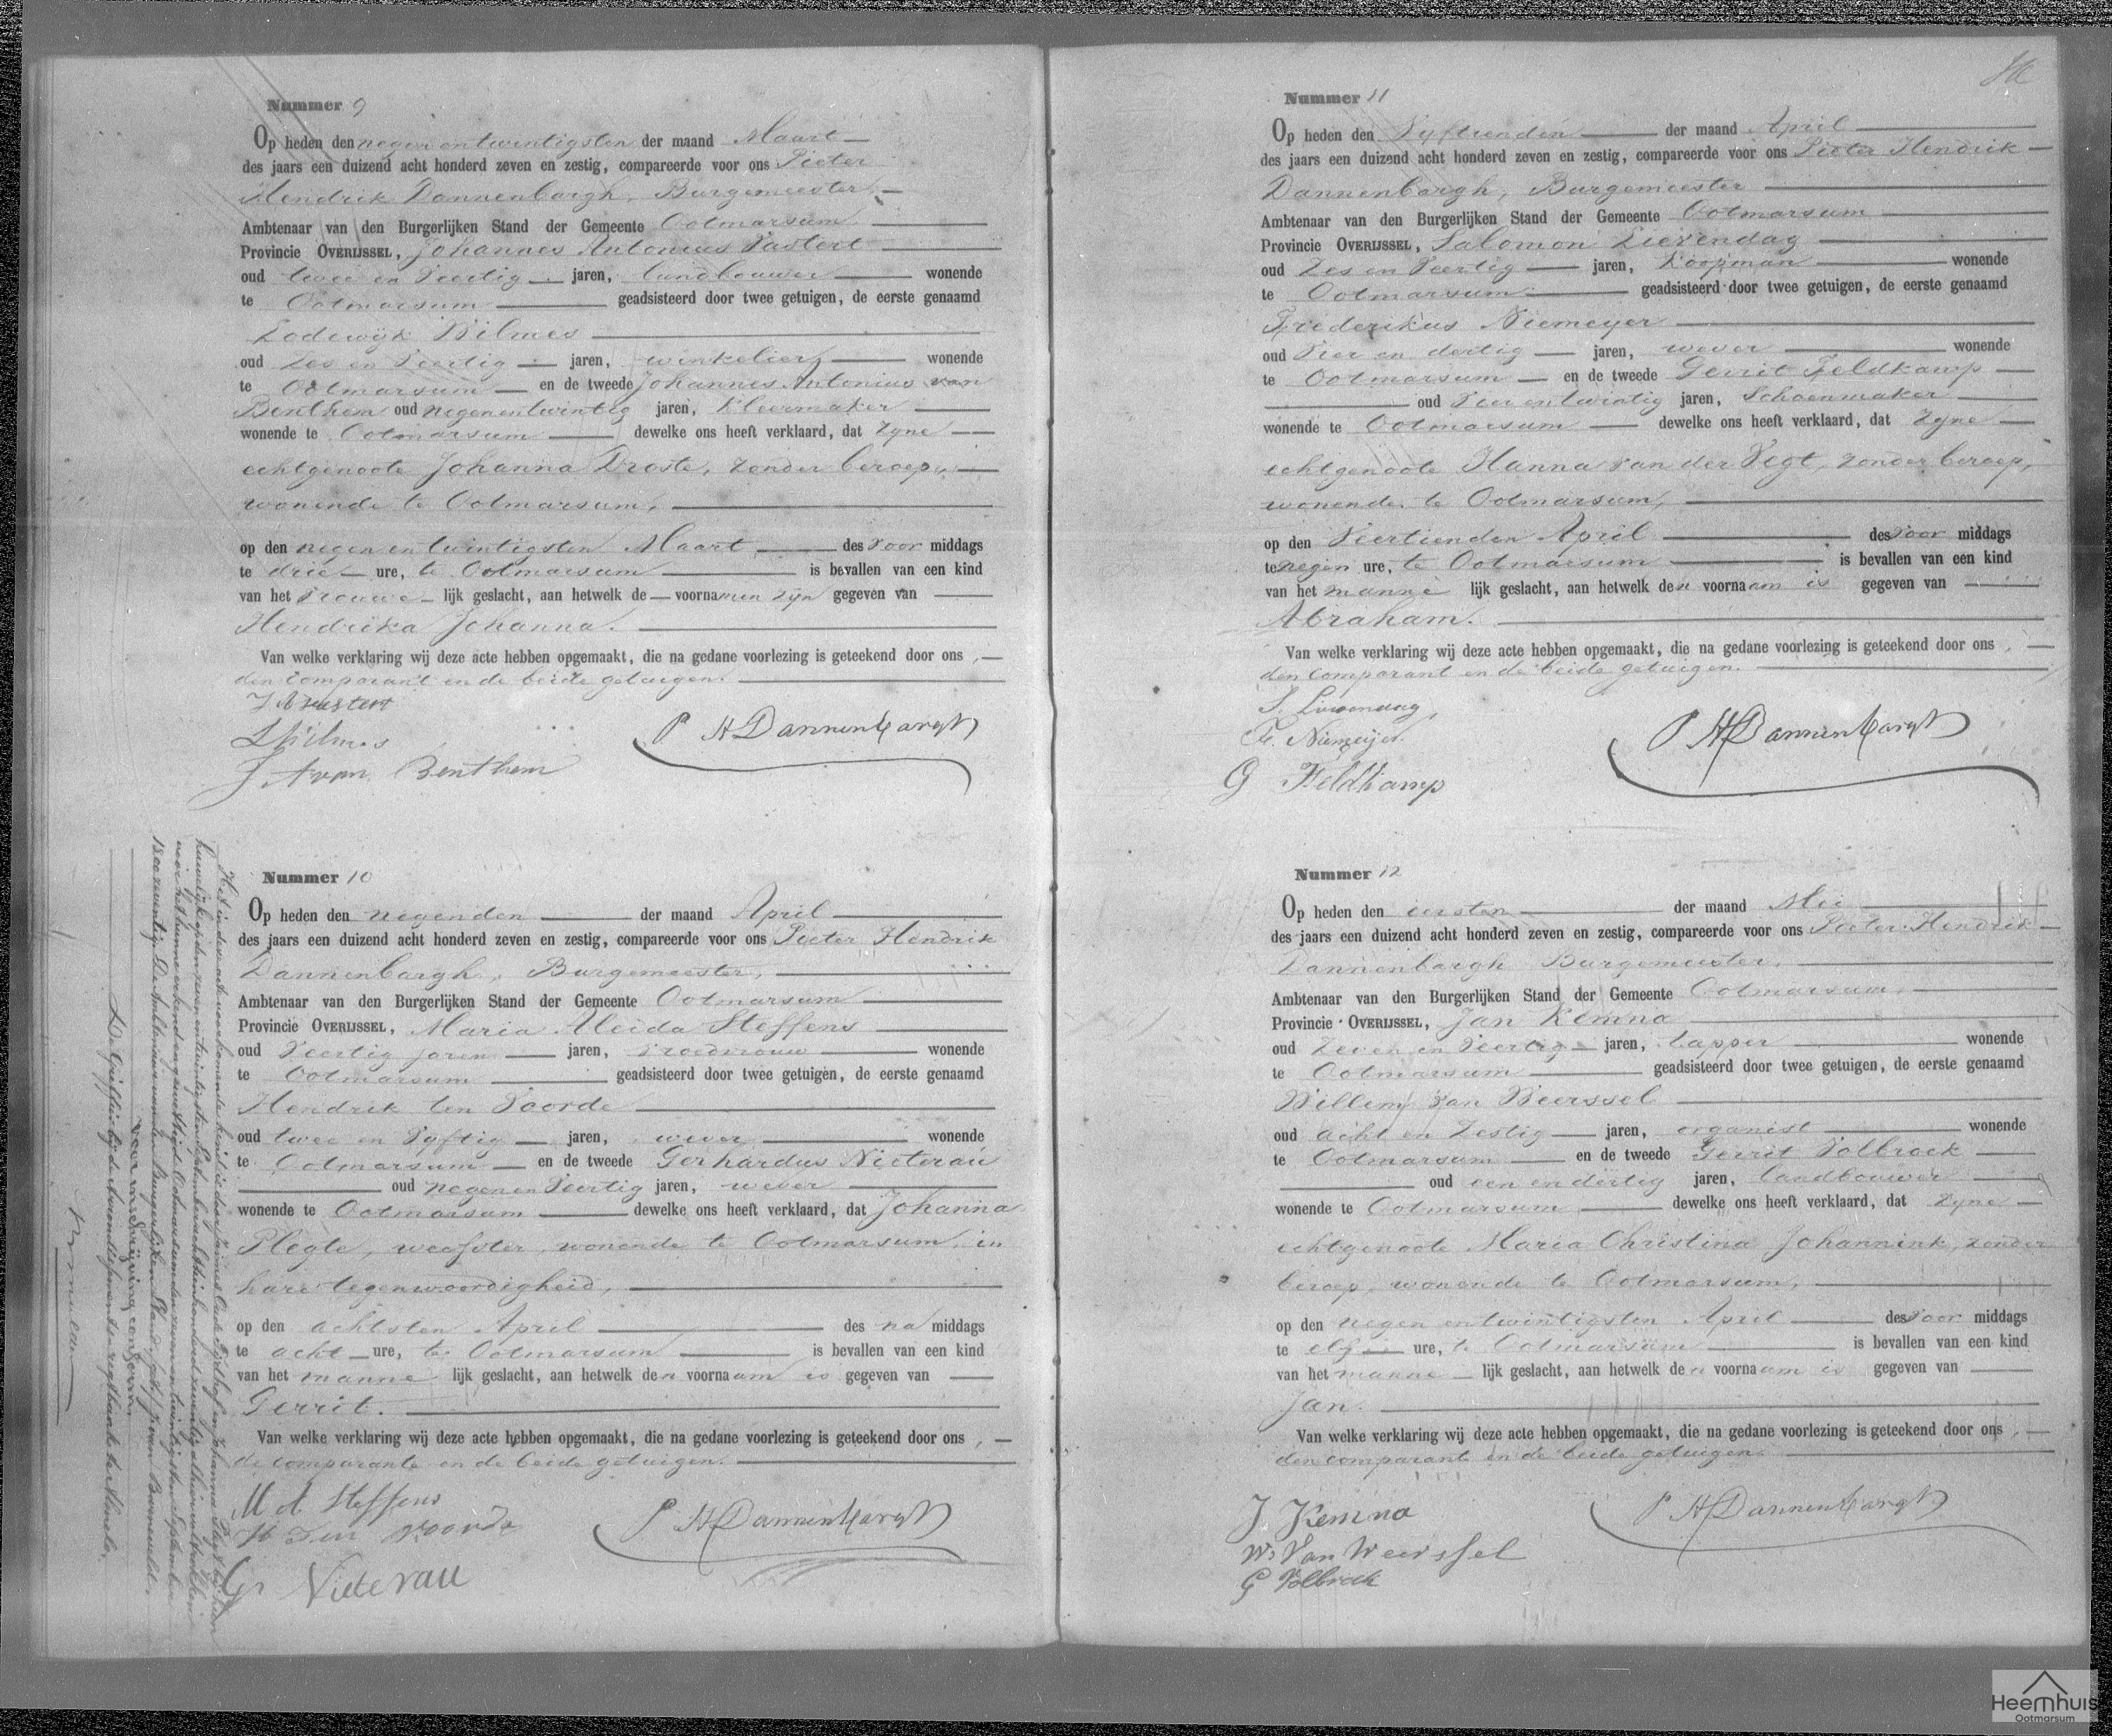 Nummer 9
Op heden den negen en twintigsten der maand Maart
des jaars een duizend acht honderd zeven en zestig, compareerde voor ons Pieter
Hendrik Dannenbargh, Burgemeester,
Ambtenaar van den Burgerlijken Stand der Gemeente Ootmarsum
Provincie OVERIJSSEL, Johannes Antonius
oud twee en Veertig jaren, landbouwer wonende
te Ootmarsum geadsisteerd door twee getuigen, de eerste genaamd
Lodewijk Wilmes
oud Zes en Veertig jaren, winkelier, wonende
te Ootmarsum en de tweede Johannes Antonius van
Benthem oud negenentwintig jaren, kleermaker
wonende te Ootmarsum dewelke ons heeft verklaard, dat zyne
echtgenoote Johanna Droste, zonder beroep,
wonende te Ootmarsum,
op den negen en twintigsten Maart des voor middags
te drie ure, te Ootmarsum is bevallen van een kind
van het vrouwe lijk geslacht, aan hetwelk de voornamen zijn gegeven van
Hendrika Johanna.
Van welke verklaring wij deze acte hebben opgemaakt, die na gedane voorlezing is geteekend door ons,
den comparant en de beide getuigen.
P H Dannenbargh
J A van Benthem
Nummer 10
Op heden den negenden der maand April
des jaars een duizend acht honderd zeven en zestig, compareerde voor ons Pieter Hendrik
Dannenbargh, Burgemeester,
Ambtenaar van den Burgerlijken Stand der Gemeente Ootmarsum
Provincie OVERIJSSEL, Maria Aleida Steffens
oud Veertig jaren jaren, vroedvrouw wonende
te Ootmarsum geadsisteerd door twee getuigen, de eerste genaamd
Hendrik ten Voorde
oud twee en Vyftig jaren, wever, wonende
te Ootmarsum en de tweede Gerhardus Nieterau
oud negen en Veertig jaren, wever
wonende te Ootmarsum dewelke ons heeft verklaard, dat Johanna
Plegte, weefster, wonende te Ootmarsum, in
hare tegenwoordigheid,
op den achtsten April des na middags
te acht ure, te Ootmarsum is bevallen van een kind
van het manne lijk geslacht, aan hetwelk den voornaam is gegeven van
Gerrit.
Van welke verklaring wij deze acte hebben opgemaakt, die na gedane voorlezing is geteekend door ons,
de comparante en de beide getuigen.
M A Steffens
H Ten Voorde
P H Dannenbargh
G Nieterau
Nummer 11
Op heden den Vyftienden der maand April
des jaars een duizend acht honderd zeven en zestig, compareerde voor ons Pieter Hendrik
Dannenbargh, Burgemeester
Ambtenaar van den Burgerlijken Stand der Gemeente Ootmarsum
Provincie OVERIJSSEL, Salomon Lievendag
oud Zes en Veertig jaren, Koopman wonende
te Ootmarsum geadsisteerd door twee getuigen, de eerste genaamd
Frederikus Niemeyer
oud Vier en dertig jaren, wever wonende
te Ootmarsum en de tweede Gerrit Feldkamp
oud Vier entwintig jaren, Schoenmaker
wonende te Ootmarsum dewelke ons heeft verklaard, dat zyne
echtgenoote Hanna van der Vegt, zonder beroep,
wonende te Ootmarsum,
op den Veertienden April des voor middags
te negen ure, te Ootmarsum is bevallen van een kind
van het manne lijk geslacht, aan hetwelk den voornaam is gegeven van
Abraham.
Van welke verklaring wij deze acte hebben opgemaakt, die na gedane voorlezing is geteekend door ons,
den comparant en de beide getuigen.
F. Niemeijer
P H Dannenbargh
G Feldkamp
Nummer 12
Op heden den eersten der maand Mei
des jaars een duizend acht honderd zeven en zestig, compareerde voor ons Pieter Hendrik
Dannenbargh Burgemeester,
Ambtenaar van den Burgerlijken Stand der Gemeente Ootmarsum,
Provincie OVERIJSSEL, Jan Kemna
oud Zeven en Veertig jaren, tapper wonende
te Ootmarsum geadsisteerd door twee getuigen, de eerste genaamd
Willem van Weerssel
oud acht en Zestig jaren, organist wonende
te Ootmarsum en de tweede Gerrit Volbroek
oud een en dertig jaren, landbouwer
wonende te Ootmarsum dewelke ons heeft verklaard, dat zyne
echtgenoote Maria Christina Johannink, zonder
beroep, wonende te Ootmarsum,
op den negen entwintigsten April des voor middags
te elf ure, te Ootmarsum is bevallen van een kind
van het manne lijk geslacht, aan hetwelk den voornaam is gegeven van
Jan.
Van welke verklaring wij deze acte hebben opgemaakt, die na gedane voorlezing is geteekend door ons,
den comparant en de beide getuigen.
J Kemna
P H Dannenbargh
W. Van Weerssel
G Volbroek
Heemhuis
Ootmarsum